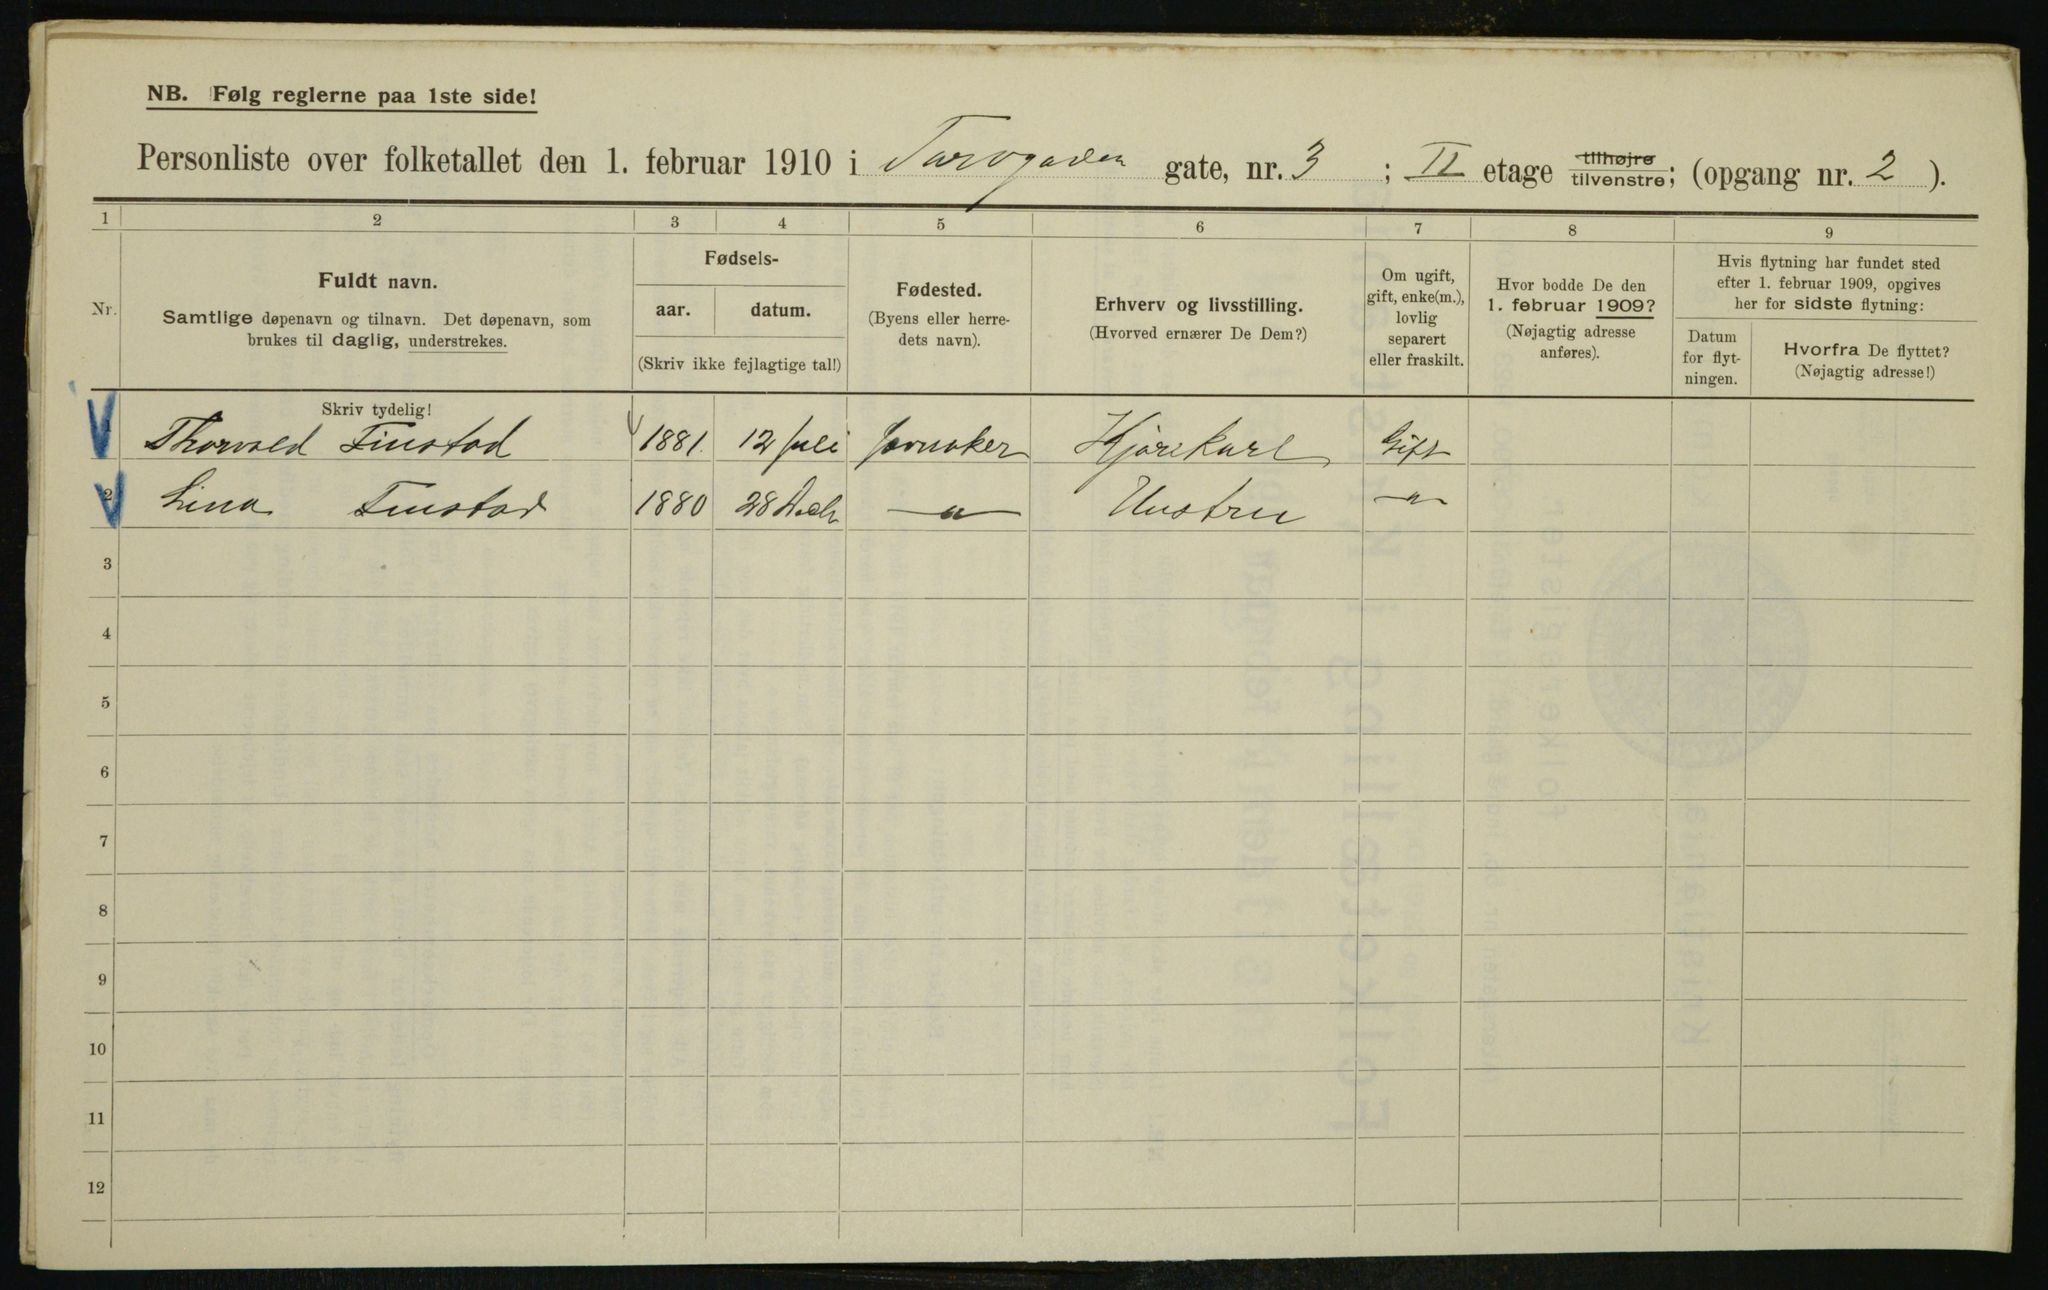 NB. Følg reglerne paa 1ste side!
Personliste over folketallet den 1. februar 1910 i Torvgaden gate, nr. 3 ; II etage tilhøjre tilvenstre; (opgang nr. 2 ).
1 2 3 4 5 6 7 8 9
Nr.
Fuldt navn.
Samtlige døpenavn og tilnavn. Det døpenavn, som
brukes til daglig, understrekes.
Fødsels-
aar. datum.
(Skriv ikke fejlagtige tal!)
Fødested.
(Byens eller herre-
dets navn).
Erhverv og livsstilling.
(Hvorved ernærer De Dem?)
Om ugift,
gift, enke(m.),
lovlig
separert
eller fraskilt.
Hvor bodde De den
1. februar 1909?
(Nøjagtig adresse
anføres).
Hvis flytning har fundet sted
efter 1. februar 1909, opgives
her for sidste flytning:
Datum
for flyt-
ningen.
Hvorfra De flyttet?
(Nøjagtig adresse!)
Skriv tydelig!
1 Thorvald Finstad 1881 12 juli Jevnaker Kjørekarl Gift
2 Lina Finstad 1880 28 — " — Hustru — " —
3
4
5
6
7
8
9
10
11
12